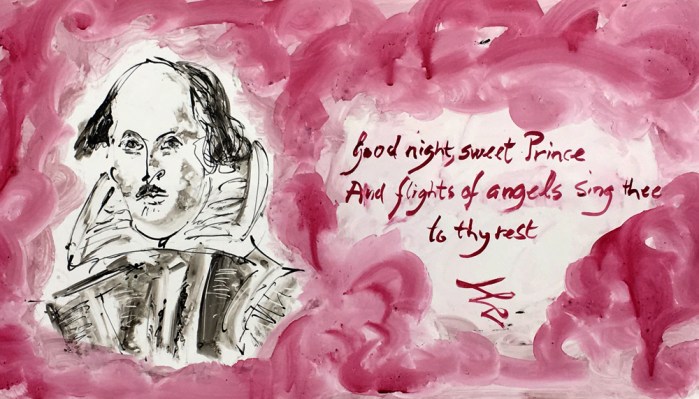 Good night, sweet Prince
And flights of angels sing thee
to thy rest